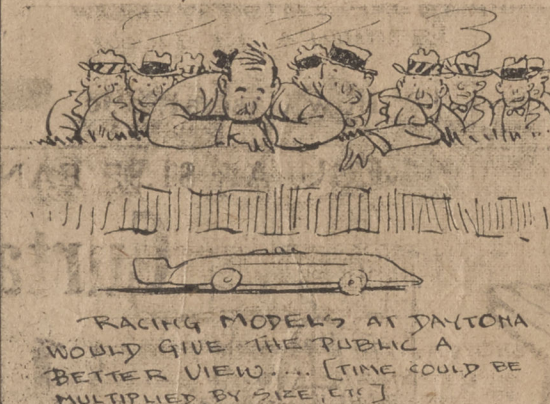 RACING MODELS AT DAYTONA
WOULD GIVE THE PUBLIC A
BETTER VIEW.... [TIME COULD BE
MULTIPLIED BY SIZE, ETC]